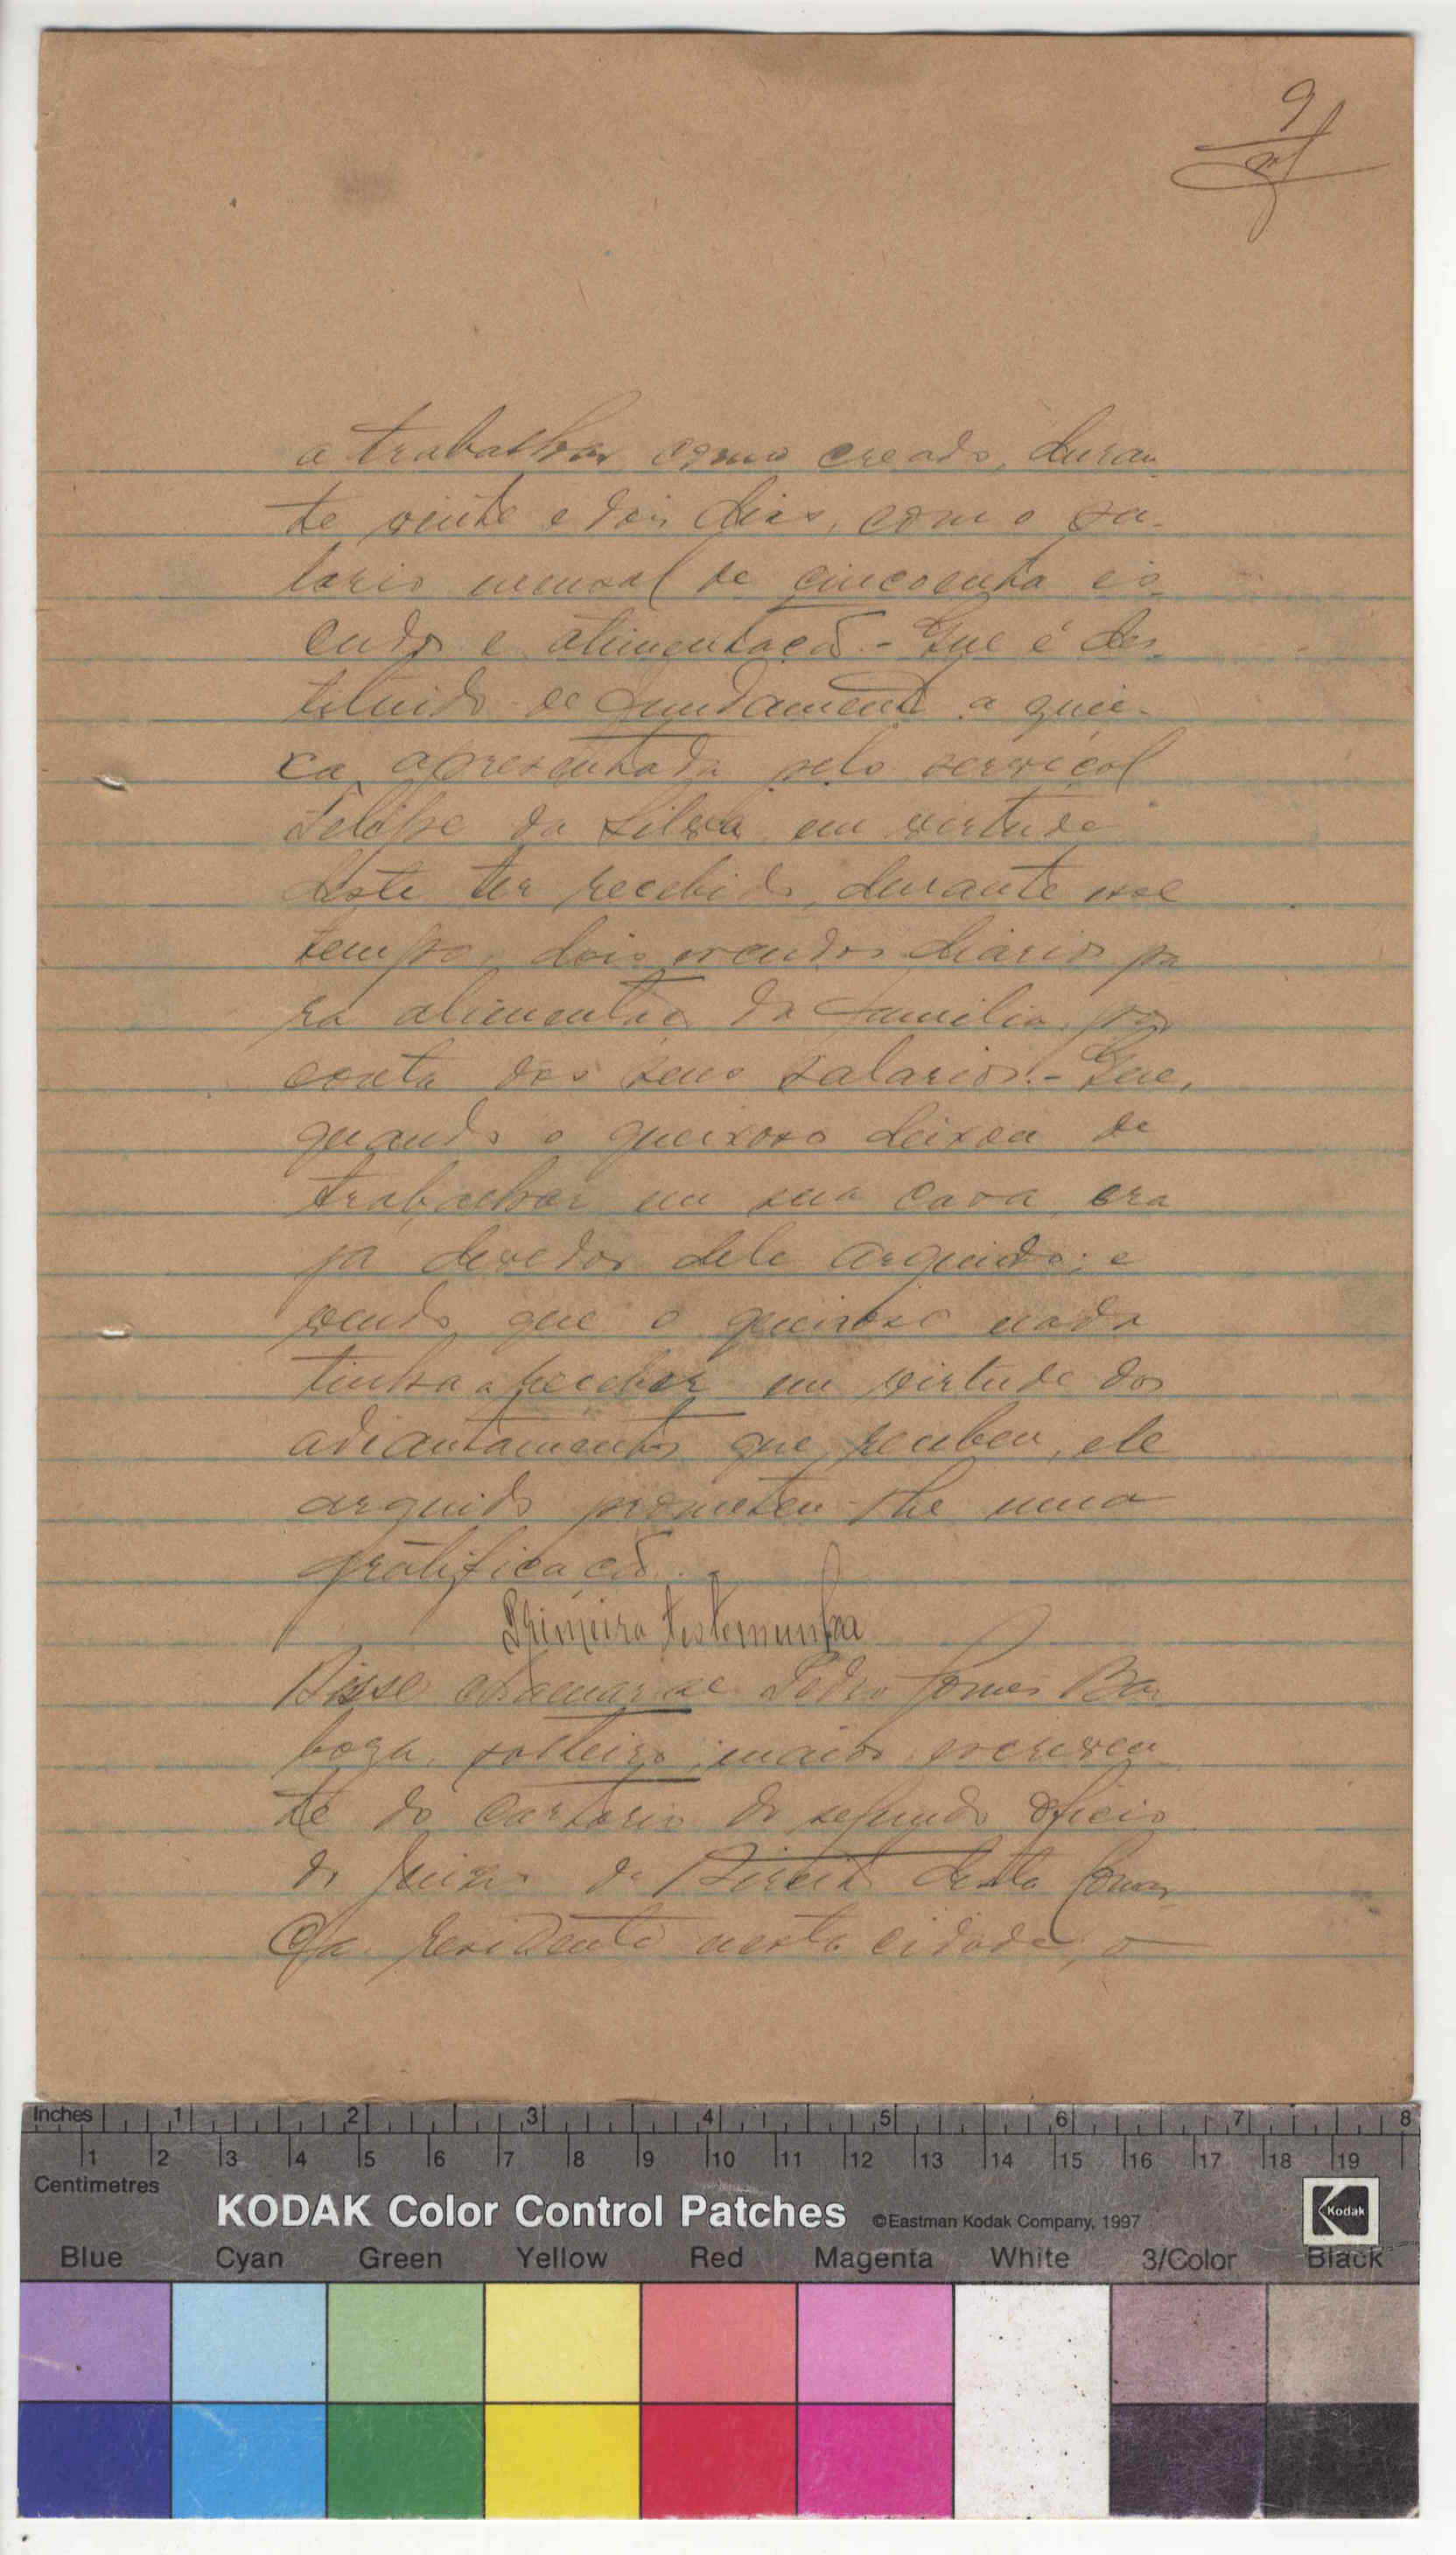 9
a trabalhar como creado, duran
te vinte e dois dias, com o sa-
lario mensal de cincoenta es-
cudos e alimentação. - Que é des-
tituido de fundamento a quei-
xa apresentada pelo serviçal
Felipe da Silva, em virtude
deste ter recebido, durante esse
tempo, dois escudos diarios pa
ra alimentação da familia, por
conta dos seus salarios. - Que,
quando o queixoso deixou de
trabalhar em sua casa, era
já devedor dele arguido; e
vendo que o queixoso nada
tinha a receber em virtude dos
adiantamentos que recebeu, ele
arguido prometeu-lhe uma
gratificação. -
Primeira testemunha
Disse chamar-se Pedro Gomes Bar
boza, solteiro, maior, escreven
te do cartorio do segundo oficio
do Juizo de Direito desta Comar
ca, residente nesta cidade, o
Inches 1 2 3 4 5 6 7 8
1 2 3 4 5 6 7 8 9 10 11 12 13 14 15 16 17 18 19
Centimetres
KODAK Color Control Patches ©Eastman Kodak Company, 1997 Kodak
Blue Cyan Green Yellow Red Magenta White 3/Color Black